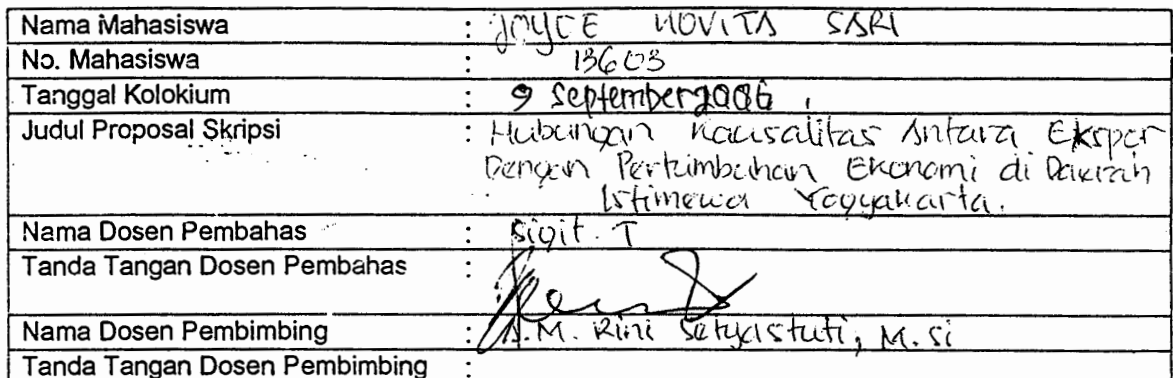 Nama Mahasiswa : JOYCE NOVITA SARI
No. Mahasiswa : 13603
Tanggal Kolokium : 9 September 2006
Judul Proposal Skripsi : Hubungan Kausalitas Antara Ekspor
Dengan Pertumbuhan Ekonomi di Daerah
Istimewa Yogyakarta.
Nama Dosen Pembahas : Sigit. T
Tanda Tangan Dosen Pembahas :
Nama Dosen Pembimbing : A.M. Rini Setyastuti, M.Si
Tanda Tangan Dosen Pembimbing :